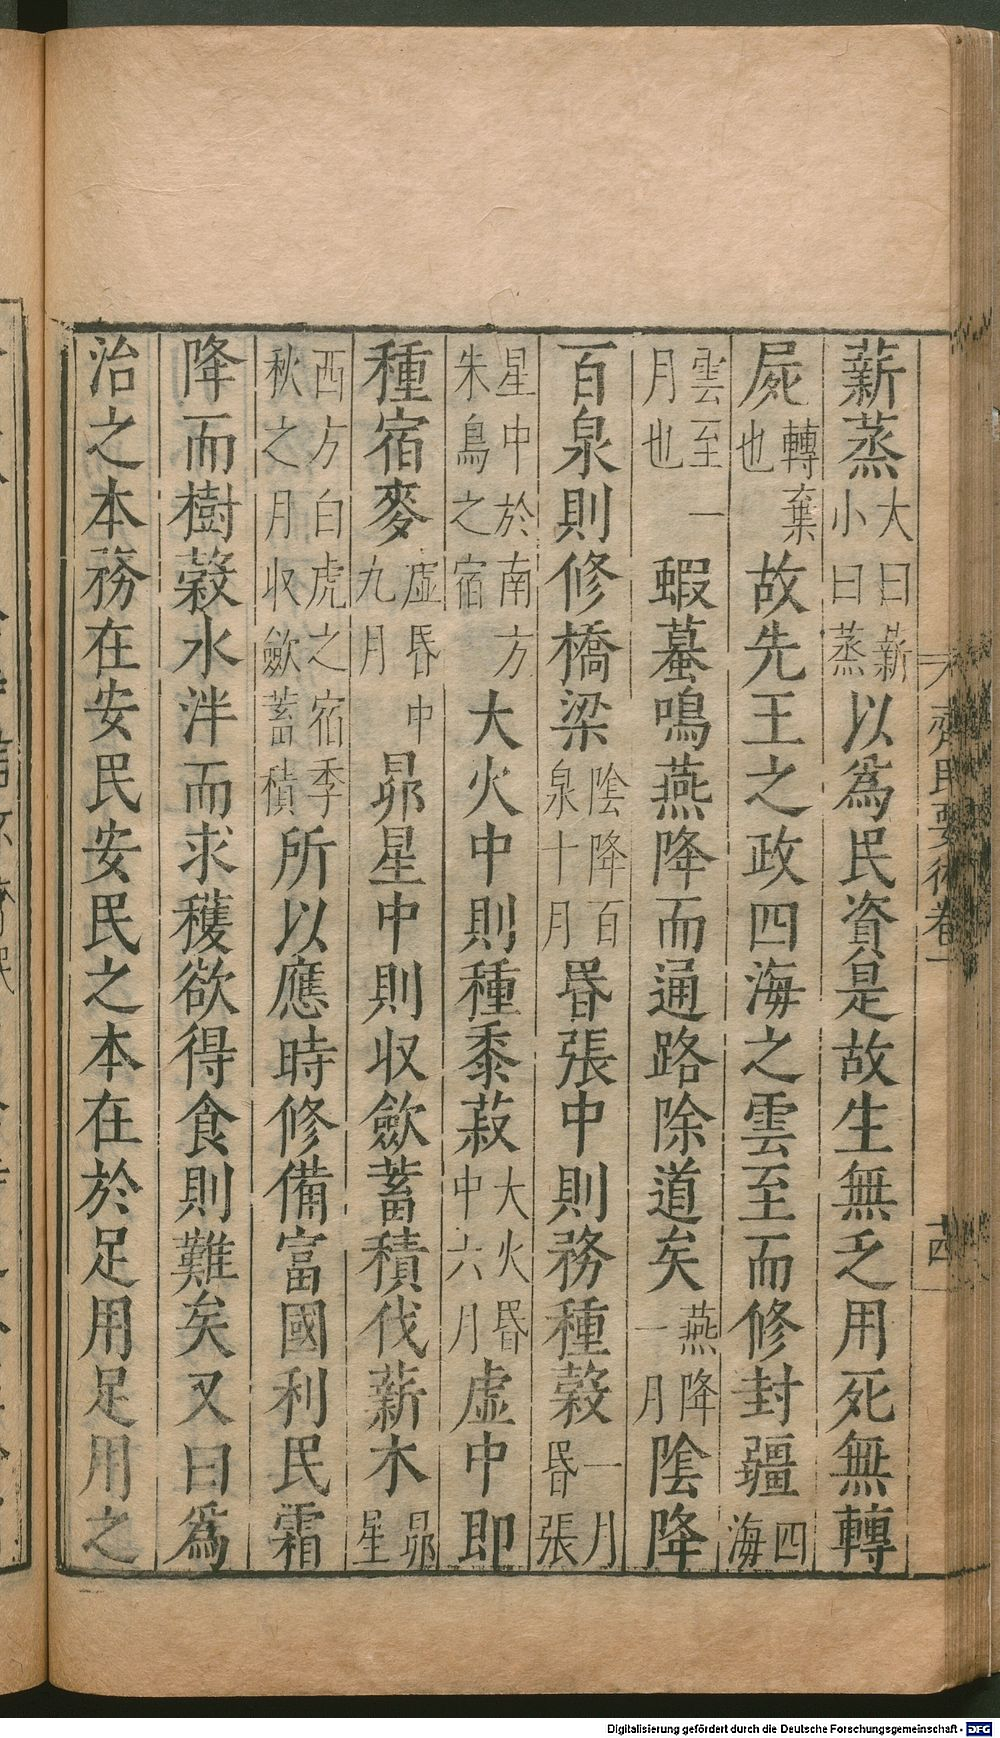 薪蒸大曰薪小曰蒸以爲民資是故生無乏用死無轉
屍轉棄也故先王之政四海之雲至而修封疆四海
雲至一月也蝦蟇鳴燕降而通路除道矣燕降一月陰降
百泉則修橋梁陰降百泉十月昬張中則務種穀一月昬張
星中於南方朱鳥之宿大火中則種黍菽大火昬中六月虛中即
種宿麥虛昬中九月昴星中則收歛蓄積伐薪木昴星
西方白虎之宿季秋之月收歛蓄積所以應時修備富國利民霜
降而樹穀水泮而求穫欲得食則難矣又曰爲
治之本務在安民安民之本在於足用足用之
齊民要術卷一
十四
Digitalisierung gefördert durch die Deutsche Forschungsgemeinschaft - DFG